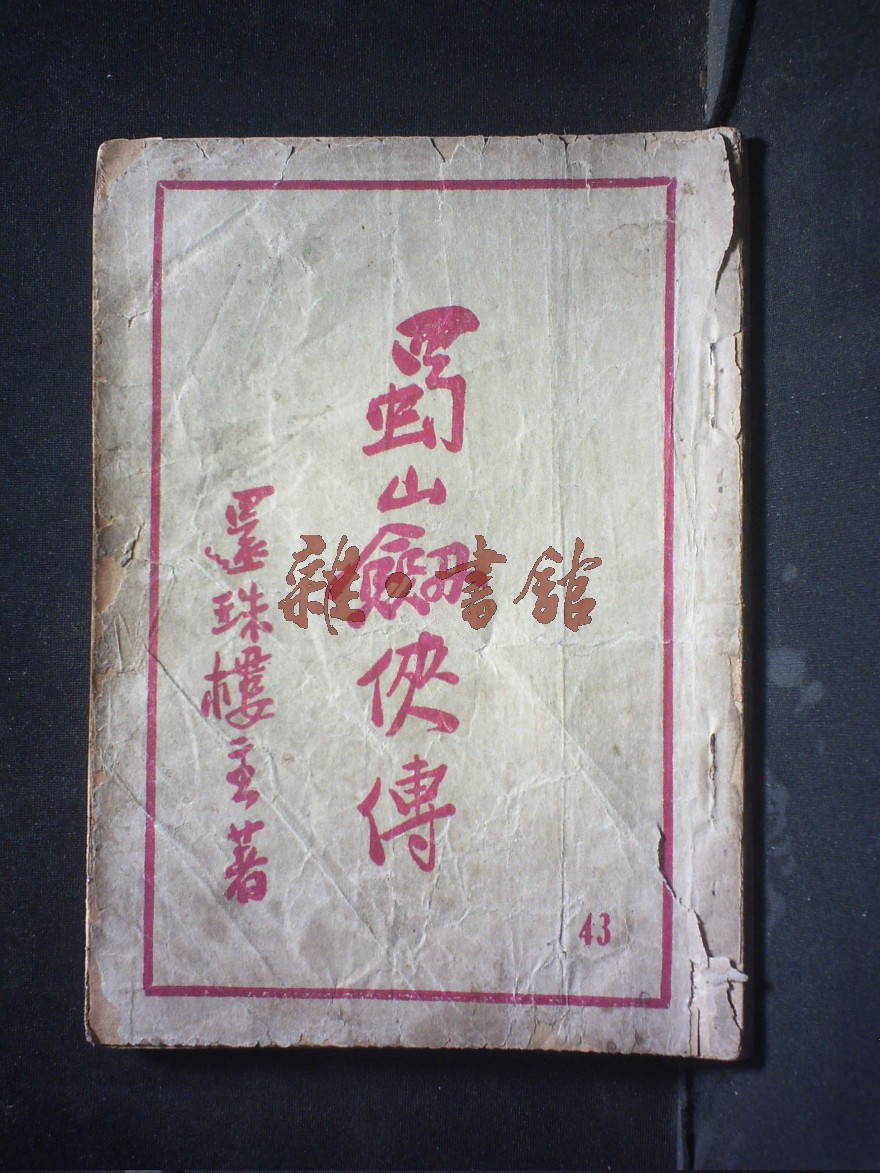 蜀山劒俠傳
還珠樓主著
43
雜·書館